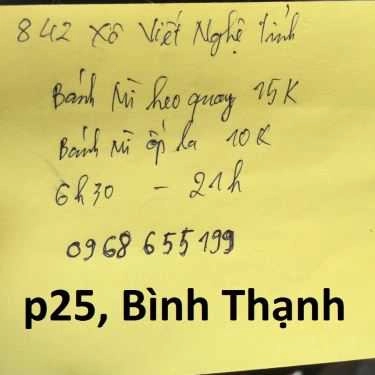 842 Xô Viết Nghệ Tĩnh
Bánh Mì heo quay 15K
Bánh Mì ốp la 10K
6h30 - 21h
0968655199
p25, Bình Thạnh